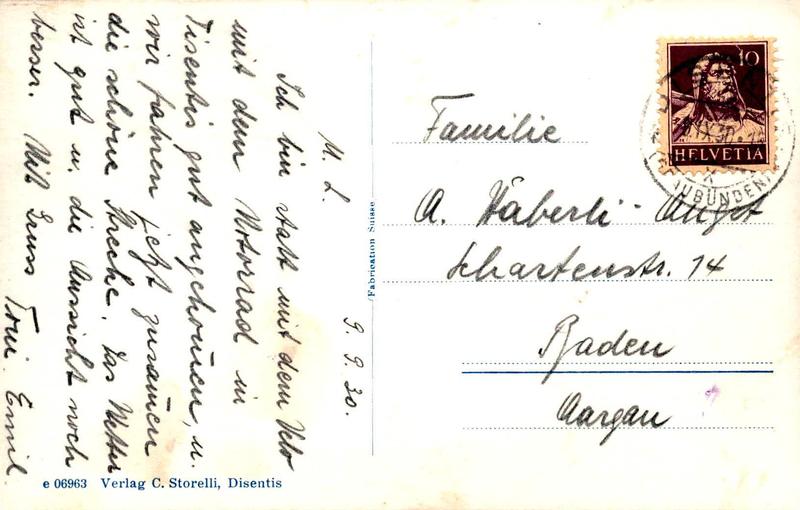 M. L.
9. 9. 30.
Ich bin statt mit dem Velo
mit dem Motorrad in
Disentis gut angekommen, u.
wir fahren jetzt zusammen
die schöne Strecke. Das Wetter
ist gut u. die Aussicht noch
besser. Mit Gruss Toni. Emil.
e 06963 Verlag C. Storelli, Disentis
Fabrication Suisse
10
HELVETIA
(GRAUBÜNDEN)
Familie
A. Häberli-Angst
Schartenstr. 14
Baden
Aargau